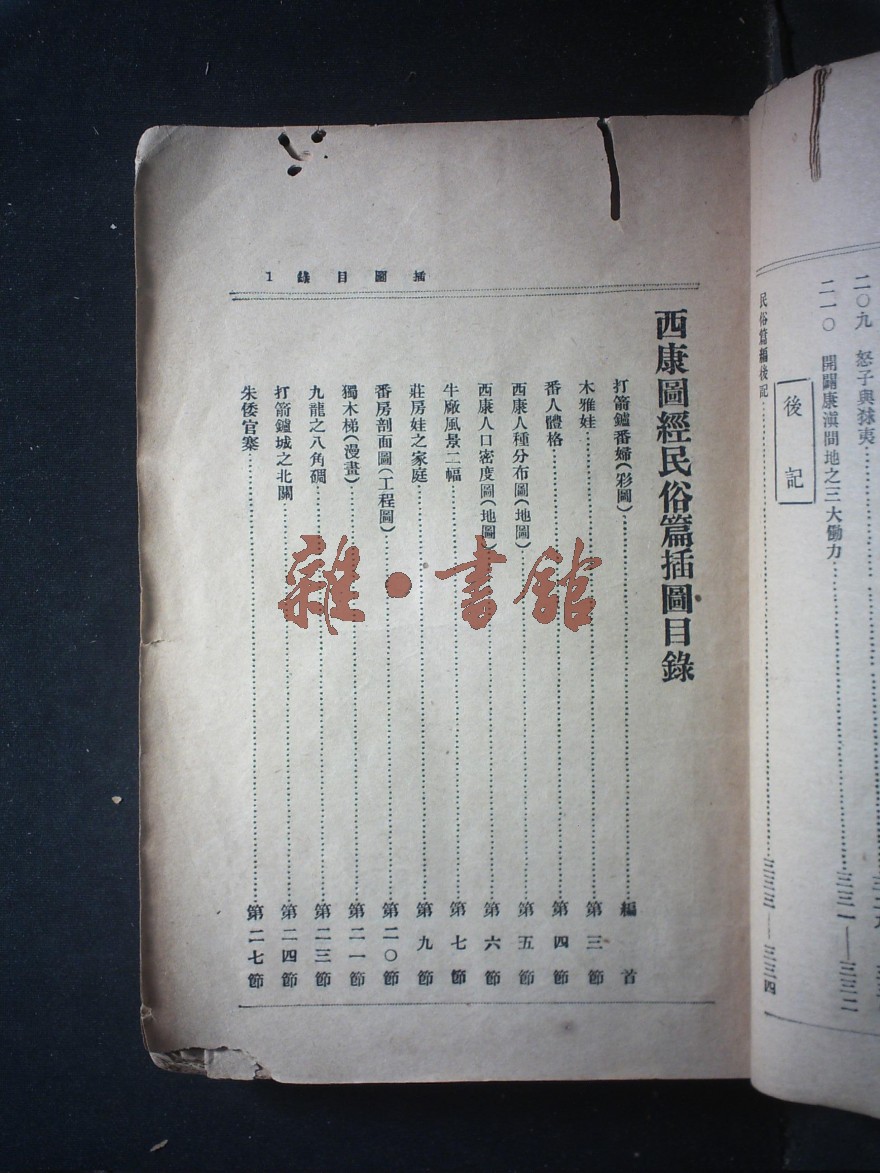 二〇九 怒子與猱夷
二一〇 開闢康滇間地之三大働力 三三一——三三二
後記
民俗篇編後記 三三三——三三四
插圖目錄 1
西康圖經民俗篇插圖目錄
打箭鑪番婦(彩圖) 編首
木雅娃 第三節
番人體格 第四節
西康人種分布圖(地圖) 第五節
西康人口密度圖(地圖) 第六節
牛廠風景二幅 第七節
莊房娃之家庭 第九節
番房剖面圖(工程圖) 第二〇節
獨木梯(漫畫) 第二一節
九龍之八角碉 第二三節
打箭鑪城之北關 第二四節
朱倭官寨 第二七節
雜·書館